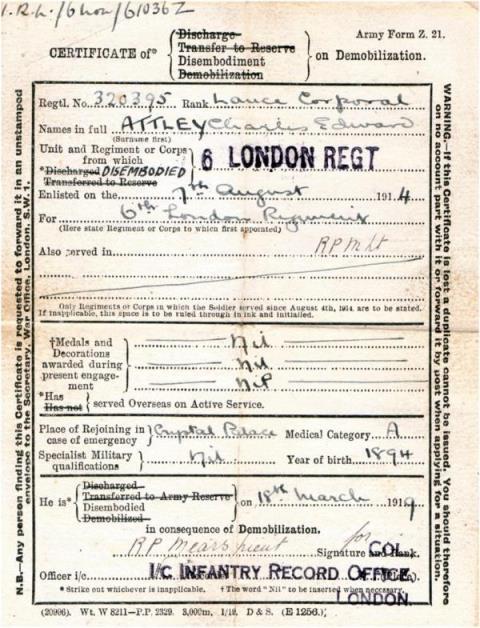 I.R.L./6 Lon/61036Z
Army Form Z. 21.
CERTIFICATE of*
Discharge
Transfer to Reserve
Disembodiment
Demobilization
on Demobilization.
Regtl. No. 320395 Rank Lance Corporal
Names in full ATTLEY Charles Edward
(Surname first)
Unit and Regiment or Corps
from which
*Discharged DISEMBODIED
Transferred to Reserve
6 LONDON REGT
Enlisted on the 7th August 1914
For 6th London Regiment
(Here state Regiment or Corps to which first appointed)
Also served in
Only Regiments or Corps in which the Soldier served since August 4th, 1914, are to be stated.
If inapplicable, this space is to be ruled through in ink and initialled.
†Medals and
Decorations
awarded during
present engage-
ment
Nil
Nil
Nil
*Has
Has not
served Overseas on Active Service.
Place of Rejoining in
case of emergency
Crystal Palace Medical Category A
Specialist Military
qualifications
Nil Year of birth 1894
He is*
Discharged
Transferred to Army Reserve
Disembodied
Demobilized
on 18th March 1919
in consequence of Demobilization.
for
Signature and Rank.
COL.
Officer i/c
I/C INFANTRY RECORD OFFICE,
LONDON.
* Strike out whichever is inapplicable. † The word "Nil" to be inserted when necessary.
(20996). Wt. W 8211—P.P. 2329. 3,000m. 1/19. D & S. (E 1256.)
N.B.—Any person finding this Certificate is requested to forward it in an unstamped
envelope to the Secretary, War Office, London, S.W.1.
WARNING.—If this Certificate is lost a duplicate cannot be issued. You should therefore
on no account part with it or forward it by post when applying for a situation.